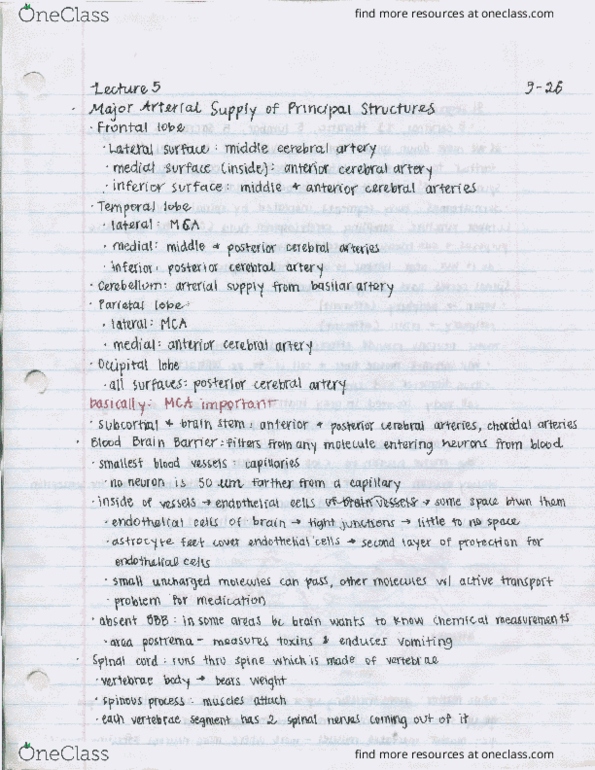 OneClass
find more resources at oneclass.com
Lecture 5
9-26
· Major Arterial Supply of Principal Structures
· Frontal lobe
· Lateral surface: middle cerebral artery
· medial surface (inside): anterior cerebral artery
· inferior surface: middle + anterior cerebral arteries
· Temporal lobe
· lateral: MCA
· medial: middle + posterior cerebral arteries
· inferior: posterior cerebral artery
· Cerebellum: arterial supply from basilar artery
· Parietal lobe:
· lateral: MCA
· medial: anterior cerebral artery
· Occipital lobe
· all surfaces: posterior cerebral artery
basically: MCA important
· subcortial + brain stem: anterior + posterior cerebral arteries, choroidal arteries
· Blood Brain Barrier: filters from any molecule entering neurons from blood
· smallest blood vessels: capillaries
· no neuron is 50 um farther from a capillary
· inside of vessels → endothelial cells of brain vessels → some space btwn them
· endothelial cells of brain → tight junctions → little to no space
· astrocyte feet cover endothelial cells → second layer of protection for
endothelial cells
· small uncharged molecules can pass, other molecules w/ active transport
· problem for medication
· absent BBB: in some areas bc brain wants to know chemical measurements
· area postrema - measures toxins & enduses vomiting
· Spinal cord: runs thru spine which is made of vertebrae
· vertebrae body → bears weight
· spinous process: muscles attach
· each vertebrae segment has 2 spinal nerves coming out of it
OneClass
find more resources at oneclass.com